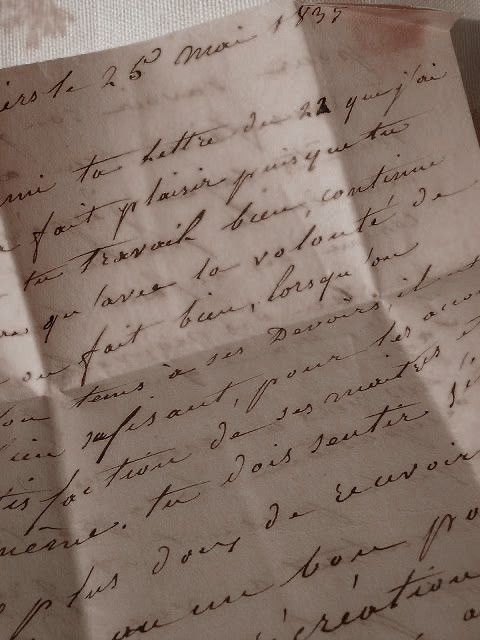 iers le 25 mai 1837
mi ta lettre du 22 que j'ai
fait plaisir puisque tu
tu travail bien, continue
qu'avec la volonté de
on fait bien, lorsqu'on
tems à ses Devoirs il
bien suffisant, pour les
tisfaction de ses maitres
même. tu dois sentir
plus doux de recevoir
ou un bon
création